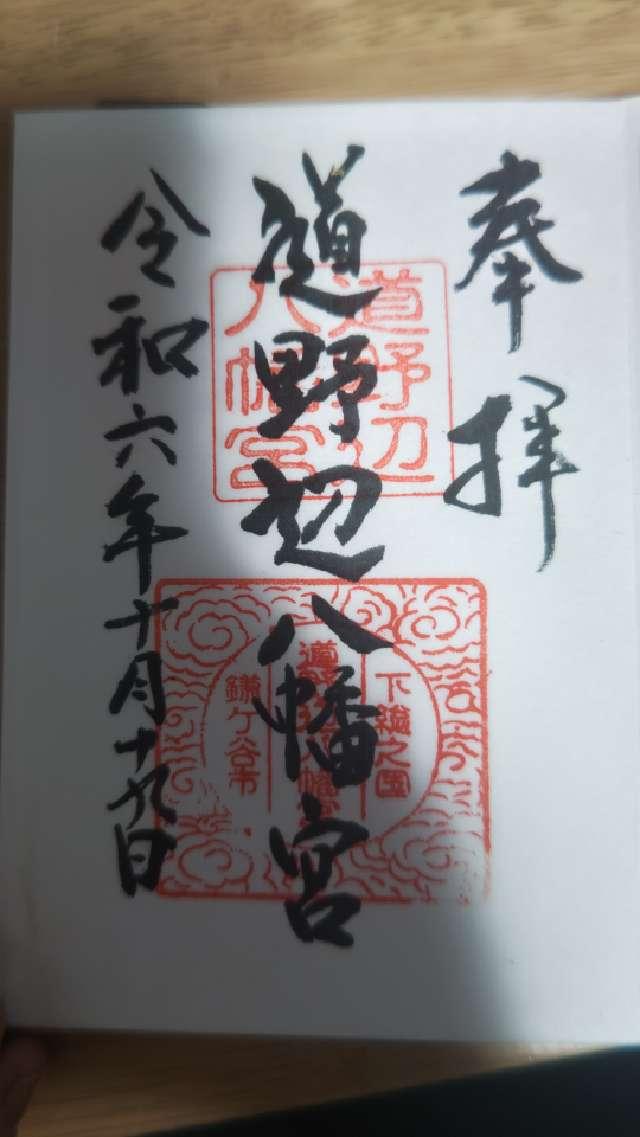 奉拝
道野辺八幡宮
令和六年十月十九日
道野辺
八幡宮
下総之国
道野辺八幡宮
鎌ケ谷市